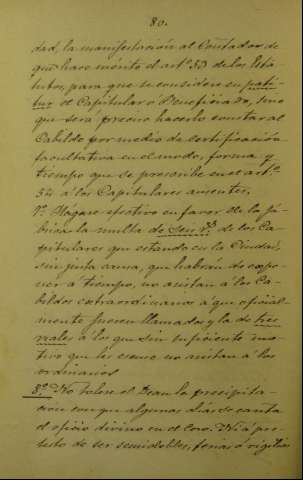 80.
dad, la manifestación al Contador de
que hace mérito el artº 33 de los Esta-
tutos, para que se considere en pati-
tur el Capitular o Beneficiado, sino
que será preciso hacerlo constar al
Cabildo por medio de certificación
facultativa en el modo, forma y
tiempo que se prescribe en el artº
34 a los Capitulares ausentes,
7ª Hágase efectivo en favor de la fá-
brica la multa de seis rs de los Ca-
pitulares que estando en la Ciudad,
sin justa causa, que habrán de expo-
ner a tiempo, no asistan a los Ca-
bildos extraordinarios a que oficial-
mente fueren llamados y la de tres
reales a los que sin suficiente mo-
tivo que les excuse no asistan a los
ordinarios
8ª No tolere el Dean la precipita-
cion con que algunos dias se canta
el oficio divino en el Coro. Ni a pre-
testo de ser semidobles, feria o vigilia